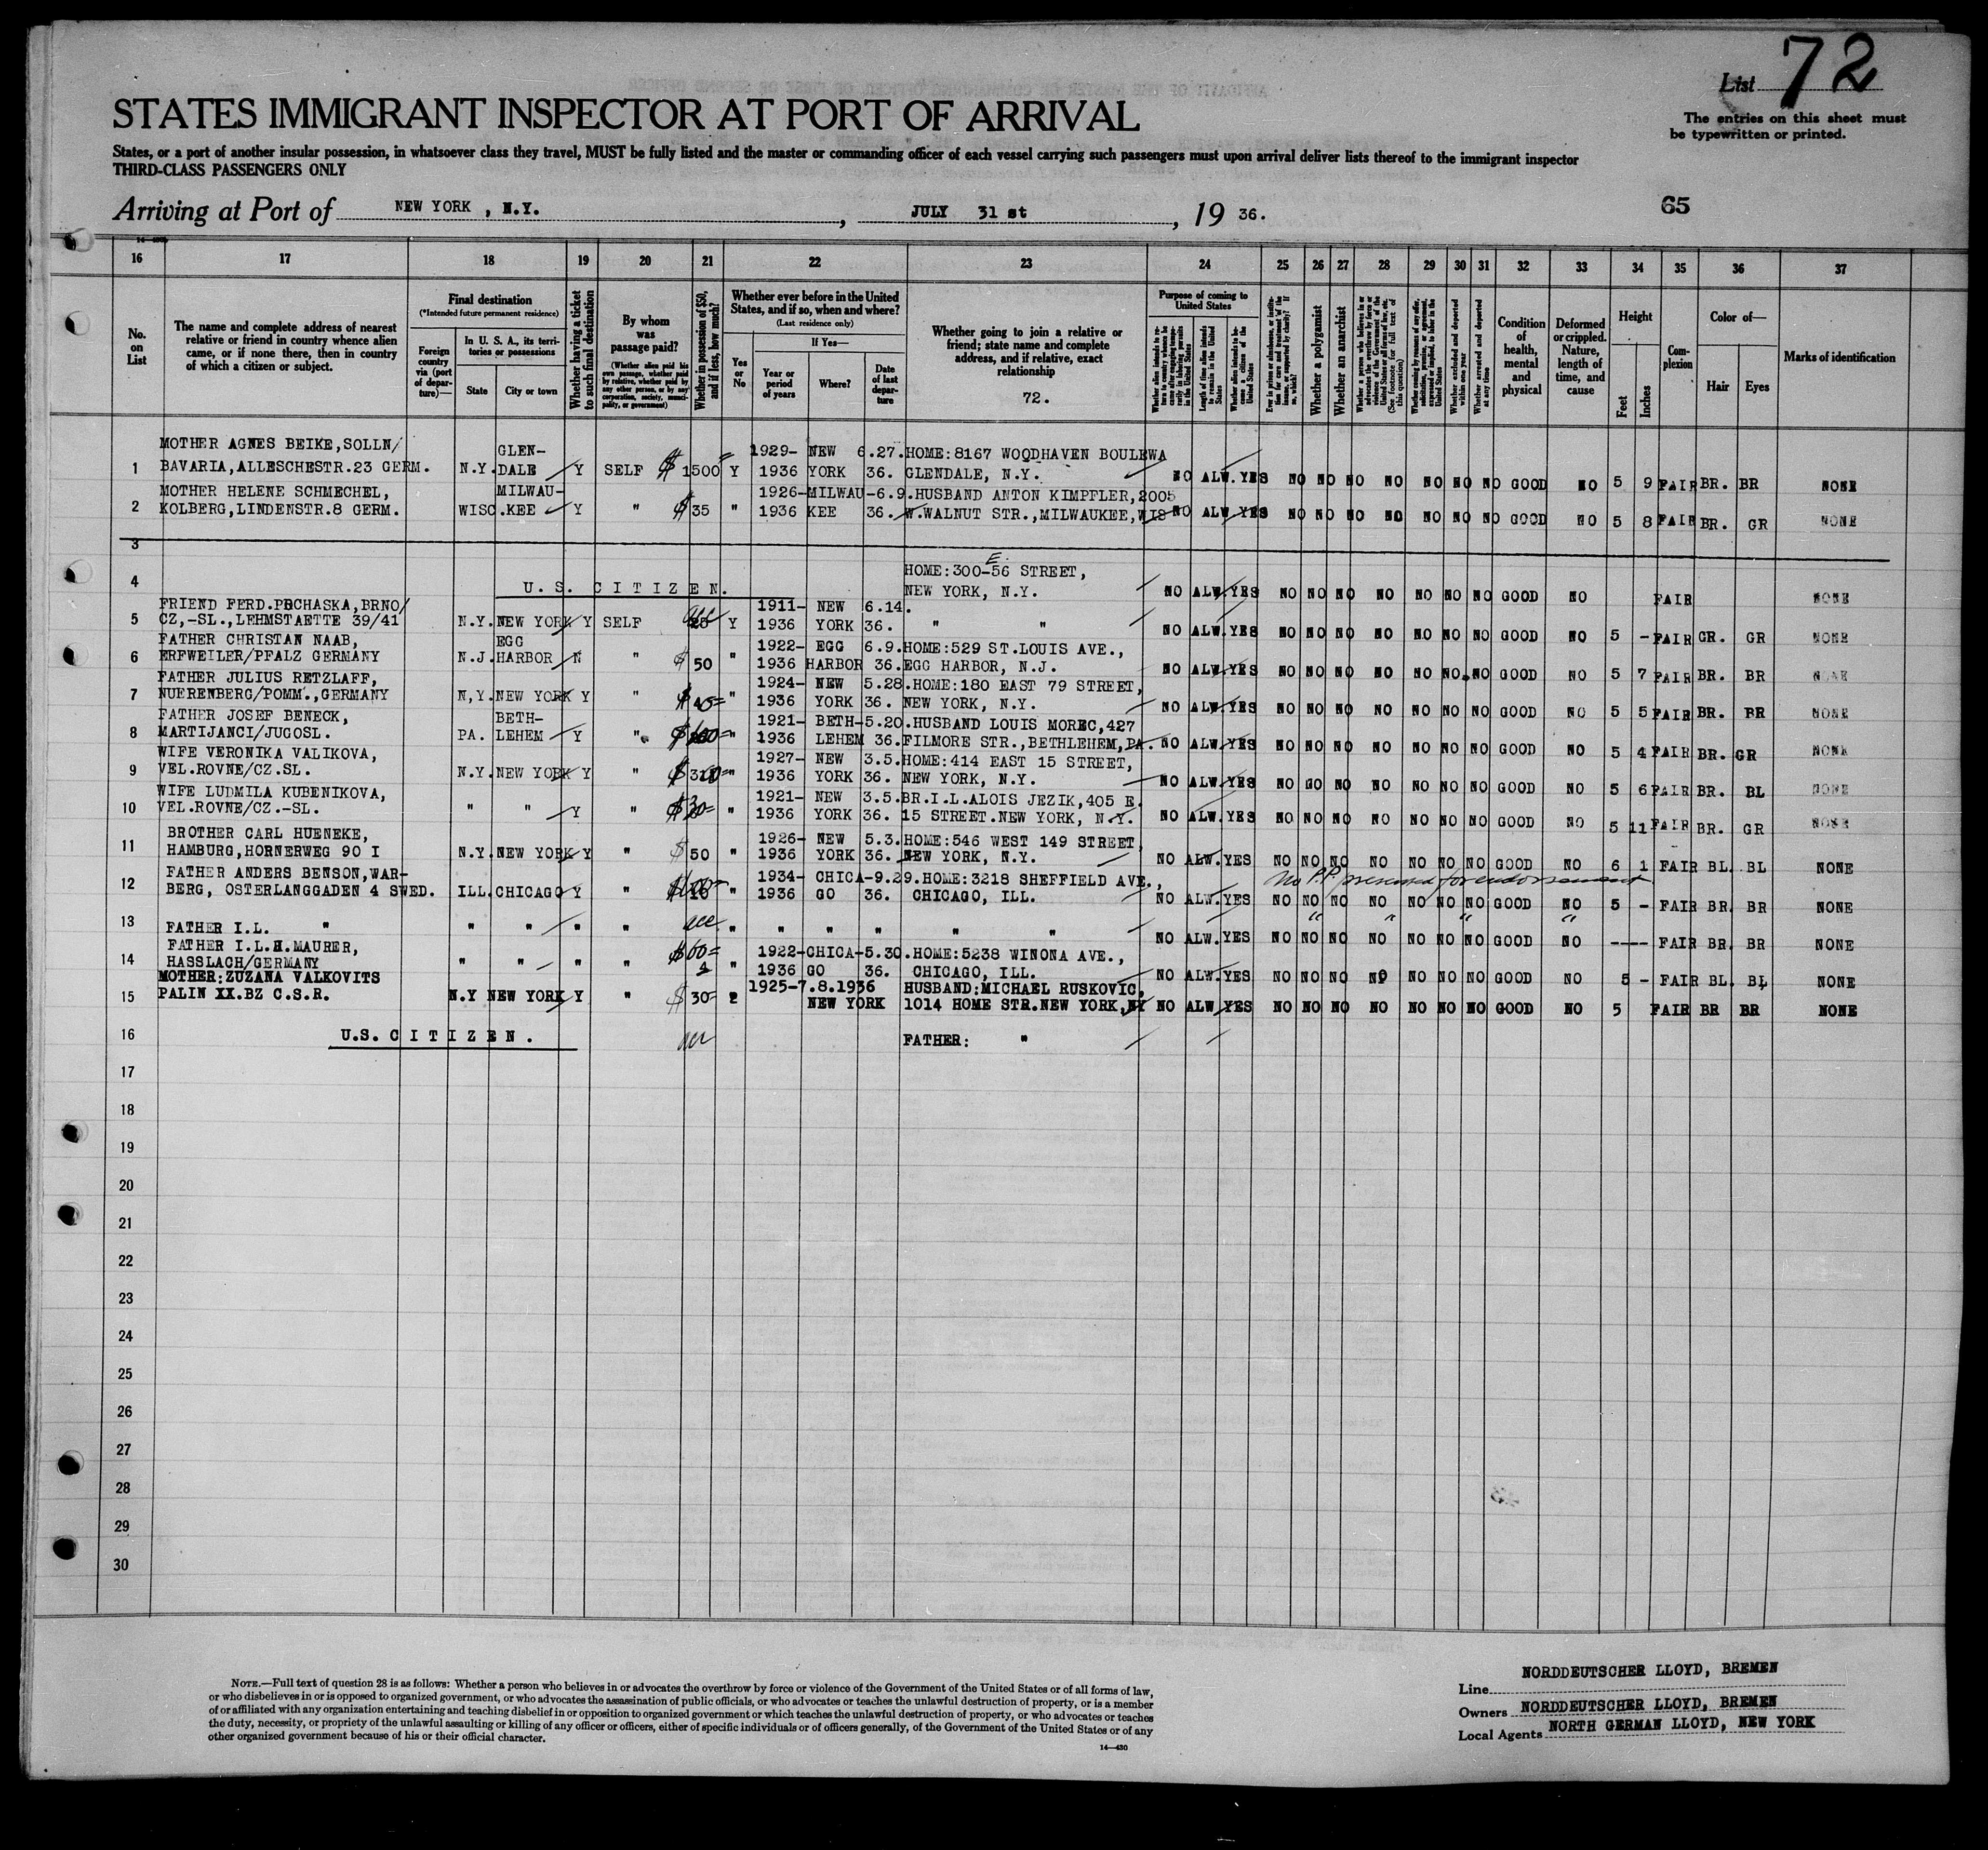 List 72
The entries on this sheet must
be typewritten or printed.
STATES IMMIGRANT INSPECTOR AT PORT OF ARRIVAL
States, or a port of another insular possession, in whatsoever class they travel, MUST be fully listed and the master or commanding officer of each vessel carrying such passengers must upon arrival deliver lists thereof to the immigrant inspector
THIRD-CLASS PASSENGERS ONLY
65
Arriving at Port of NEW YORK , N.Y. , JULY 31 st , 19 36.
16 17 18 19 20 21 22 23 24 25 26 27 28 29 30 31 32 33 34 35 36 37
No. on List
The name and complete address of nearest relative or friend in country whence alien came, or if none there, then in country of which a citizen or subject.
Final destination
(*Intended future permanent residence)
Foreign country via (port of departure)—
In U. S. A., its territories or possessions
State
City or town
Whether having a ticket to such final destination
By whom was passage paid?
(Whether alien paid his own passage, whether paid by relative, whether paid by any other person, or by any corporation, society, municipality, or government)
Whether in possession of $50, and if less, how much?
Whether ever before in the United States, and if so, when and where?
(Last residence only)
Yes or No
If Yes—
Year or period of years
Where?
Date of last departure
Whether going to join a relative or friend; state name and complete address, and if relative, exact relationship
72.
Purpose of coming to United States
Length of time alien intends to remain in the United States
Whether alien intends to become a citizen of the United States
Whether a polygamist
Whether an anarchist
(See footnote for full text of this question)
Whether excluded and deported within one year
Whether arrested and deported at any time
Condition of health, mental and physical
Deformed or crippled. Nature, length of time, and cause
Height
Feet
Inches
Complexion
Color of—
Hair
Eyes
Marks of identification
MOTHER AGNES BEIKE,SOLLN/ GLEN- 1929- NEW 6.27.HOME:8167 WOODHAVEN BOULEWA
1 BAVARIA,ALLESCHESTR.23 GERM. N.Y. DALE Y SELF $ 1500 Y 1936 YORK 36. GLENDALE, N.Y. NO ALW. YES NO NO NO NO NO NO NO GOOD NO 5 9 FAIR BR. BR NONE
MOTHER HELENE SCHMECHEL, MILWAU- 1926-MILWAU-6.9.HUSBAND ANTON KIMPFLER,2005
2 KOLBERG,LINDENSTR.8 GERM. WISC.KEE Y " $ 35 " 1936 KEE 36. W.WALNUT STR.,MILWAUKEE,WIS NO ALW YES NO NO NO NO NO NO NO GOOD NO 5 8 FAIR BR. GR NONE
3
E.
HOME:300-56 STREET,
4 U.S. CITIZEN. NEW YORK, N.Y. NO ALW YES NO NO NO NO NO NO NO GOOD NO FAIR NONE
FRIEND FERD.PROCHASKA,BRNO/ 1911- NEW 6.14.
5 CZ,-SL.,LEHMSTAETTE 39/41 N.Y. NEW YORK Y SELF Y 1936 YORK 36. " " NO ALW. YES NO NO NO NO NO NO NO GOOD NO 5 - FAIR GR. GR NONE
FATHER CHRISTAN NAAB, EGG 1922- EGG 6.9.HOME:529 ST.LOUIS AVE.,
6 ERFWEILER/PFALZ GERMANY N.J. HARBOR N " $ 50 " 1936 HARBOR 36. EGG HARBOR, N.J. NO ALW YES NO NO NO NO NO NO NO GOOD NO 5 7 FAIR BR. BR NONE
FATHER JULIUS RETZLAFF, 1924- NEW 5.28.HOME:180 EAST 79 STREET,
7 NUERENBERG/POMM.,GERMANY N,Y. NEW YORK Y " " 1936 YORK 36. NEW YORK, N.Y. NO ALW YES NO NO NO NO NO NO NO GOOD NO 5 5 FAIR BR. BR NONE
FATHER JOSEF BENECK, BETH- 1921- BETH-5.20.HUSBAND LOUIS MOREC,427
8 MARTIJANCI/JUGOSL. PA. LEHEM Y " $ 100 " 1936 LEHEM 36. FILMORE STR.,BETHLEHEM,PA. NO ALW. YES NO NO NO NO NO NO NO GOOD NO 5 4 FAIR BR. GR NONE
WIFE VERONIKA VALIKOVA, 1927- NEW 3.5.HOME:414 EAST 15 STREET,
9 VEL.ROVNE/CZ.SL. N.Y. NEW YORK Y " " 1936 YORK 36. NEW YORK, N.Y. NO ALW YES NO GO NO NO NO NO NO GOOD NO 5 6 FAIR BR. BL NONE
WIFE LUDMILA KUBENIKOVA, 1921- NEW 3.5.BR.I.L.ALOIS JEZIK,405 E.
10 VEL.ROVNE/CZ.-SL. " " Y " " 1936 YORK 36. 15 STREET.NEW YORK, N.Y. NO ALW. YES NO NO NO NO NO NO NO GOOD NO 5 11 FAIR BR. GR NONE
BROTHER CARL HUENEKE, 1926- NEW 5.3.HOME:546 WEST 149 STREET,
11 HAMBURG,HORNERWEG 90 I N.Y. NEW YORK Y " $ 50 " 1936 YORK 36. NEW YORK, N.Y. NO ALW. YES NO NO NO NO NO NO NO GOOD NO 6 1 FAIR BL. BL NONE
FATHER ANDERS BENSON,WAR- 1934- CHICA-9.29.HOME:3218 SHEFFIELD AVE., No P.P. presented for endorsement
12 BERG, OSTERLANGGADEN 4 SWED. ILL. CHICAGO Y " " 1936 GO 36. CHICAGO, ILL. NO ALW. YES NO NO NO NO NO NO NO GOOD NO 5 - FAIR BR. BR NONE
13 FATHER I.L. " " " " " " " " " " " NO ALW. YES NO NO NO NO NO NO NO GOOD NO ---- FAIR BR. BR NONE
FATHER I.L.H.MAURER, $60= 1922-CHICA-5.30.HOME:5238 WINONA AVE.,
14 HASSLACH/GERMANY " " " " " 1936 GO 36. CHICAGO, ILL. NO ALW. YES NO NO NO NO NO NO NO GOOD NO 5 - FAIR BL. BL NONE
MOTHER:ZUZANA VALKOVITS 1925-7.8.1936 HUSBAND:MICHAEL RUSKOVIC,
15 PALIN XX.BZ C.S.R. N.Y NEW YORK Y " $ 30- NEW YORK 1014 HOME STR.NEW YORK,NY NO ALW YES NO NO NO NO NO NO NO GOOD NO 5 FAIR BR BR NONE
16 U.S. CITIZEN. FATHER: "
17
18
19
20
21
22
23
24
25
26
27
28
29
30
NOTE.—Full text of question 28 is as follows: Whether a person who believes in or advocates the overthrow by force or violence of the Government of the United States or of all forms of law,
or who disbelieves in or is opposed to organized government, or who advocates the assassination of public officials, or who advocates or teaches the unlawful destruction of property, or is a member
of or affiliated with any organization entertaining and teaching disbelief in or opposition to organized government or which teaches the unlawful destruction of property, or who advocates or teaches
the duty, necessity, or propriety of the unlawful assaulting or killing of any officer or officers, either of specific individuals or of officers generally, of the Government of the United States or of any
other organized government because of his or their official character.
14—430
Line NORDDEUTSCHER LLOYD, BREMEN
Owners NORDDEUTSCHER LLOYD, BREMEN
Local Agents NORTH GERMAN LLOYD, NEW YORK